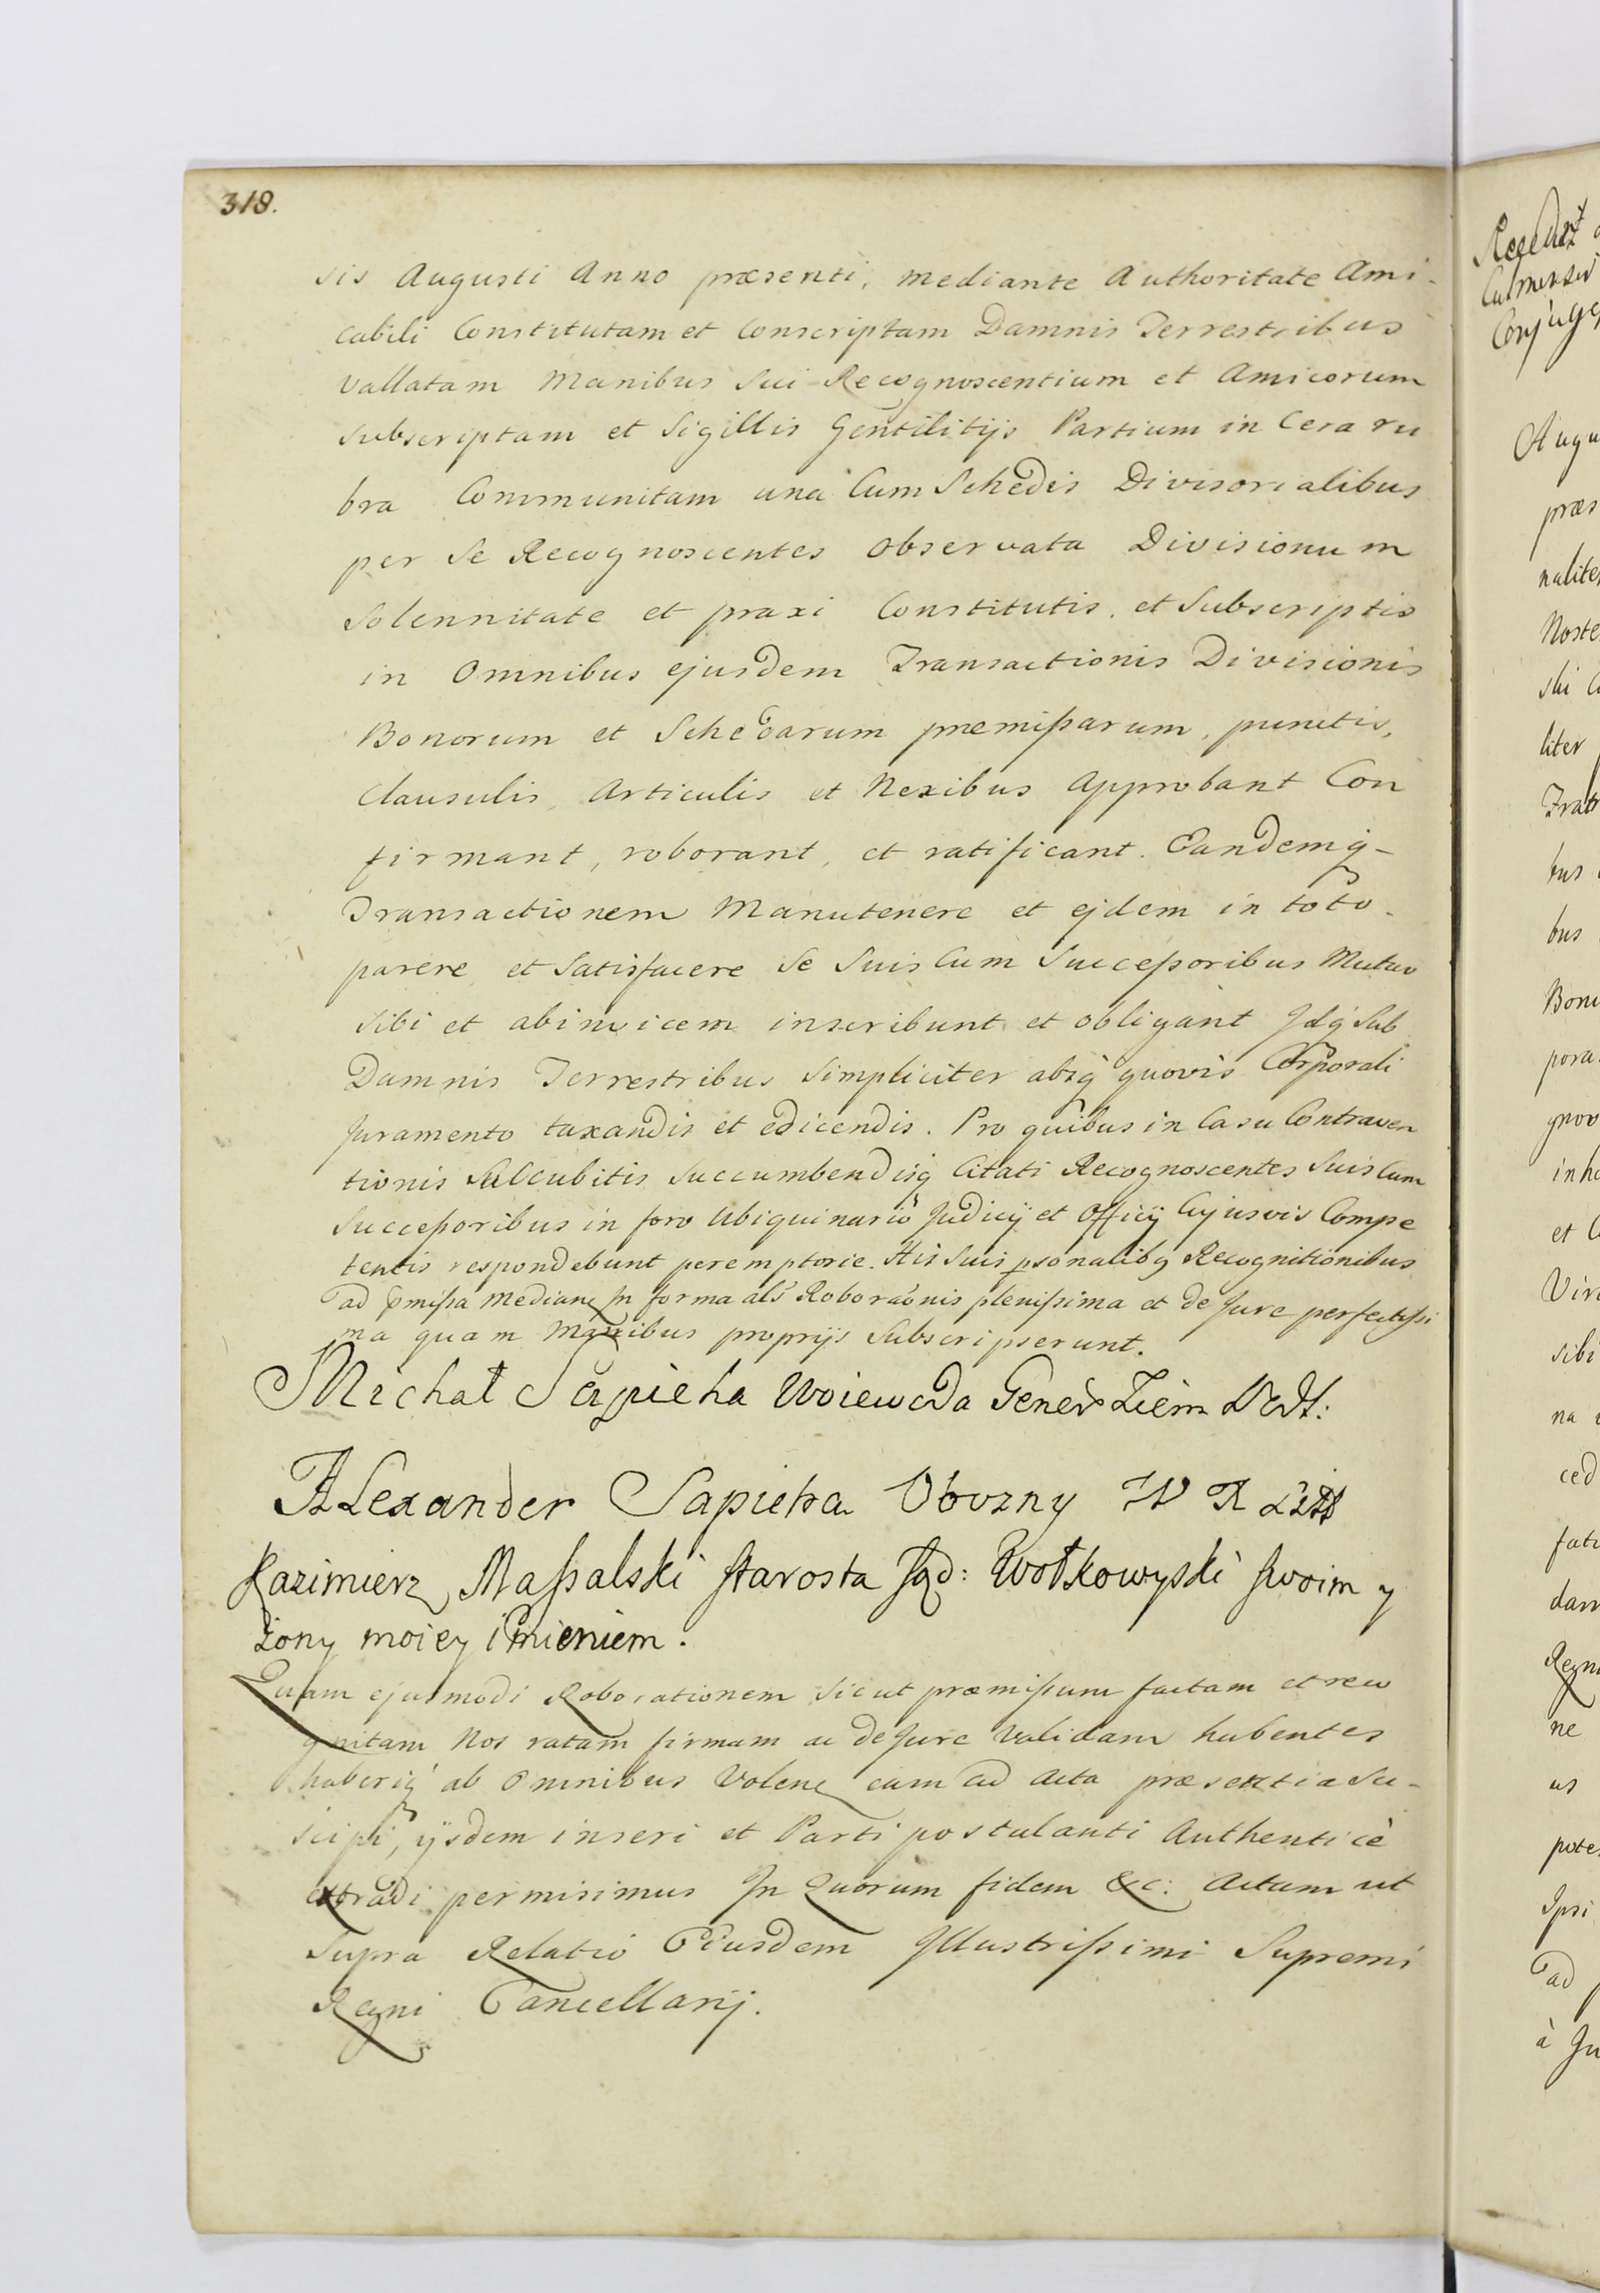 318.
sis Augusti Anno præsenti, mediante Authoritate Ami-
cabili Constitutam et Conscriptam Damnis Terrestribus
vallatam Manibus sui Recognoscentium et Amicorum
subscriptam et Sigillis Gentilitijs Partium in Cera ru
bra Communitam una Cum Schedis Divisorialibus
per se Recognoscentes observata Divisionum
solennitate et praxi Constitutis, et Subscriptis
in Omnibus ejusdem Transactionis Divisionis
Bonorum et Schedarum præmißarum, punctis,
Clausulis, Articulis et Nexibus Approbant Con
firmant, roborant, et ratificant. Eandemq-
Transactionem Manutenere et ejdem in toto
parere et Satisfacere se Suis Cum Succeßoribus Mutuo
sibi et abinvicem inscribunt et obligant Jdq Sub
Damnis Terrestribus simpliciter absq quovis Corporali
Juramento taxandis et edicendis. Pro quibus in Casu Contraven
tionis Succubitis succumbendisq Citati Recognoscentes Suis Cum
Succeßoribus in foro Ubiquinario Judicij et Officij Cujusvis Compe
tentis respondebunt peremptorie. His Suis psonalibq Recognitionibus
ad pmißa median In forma als Roboraonis plenißima et de Jure perfectißi
ma quam Manibus proprijs Subscripserunt.
Michał Sapieha Woiewoda Generᵃ Ziem Podl:
ALexander Sapieha Obozny W X Litt
Kazimierz Maßalski starosta Sąd: Wołkowyski swoim y
żony moiey imieniem.
Quam ejusmodi Roborationem sicut præmißum factam et reco
gnitam Nos ratam firmam ac de Jure validam habentes
haberiq ab omnibus Volen eam ad Acta præsentia Su-
scipi, ijsdem inseri et Parti postulanti Authenticè
extradi permisimus In Quorum fidem &c: Actum ut
Supra Relatio Eiusdem Illustrißimi Supremi
Regni Cancellarij.